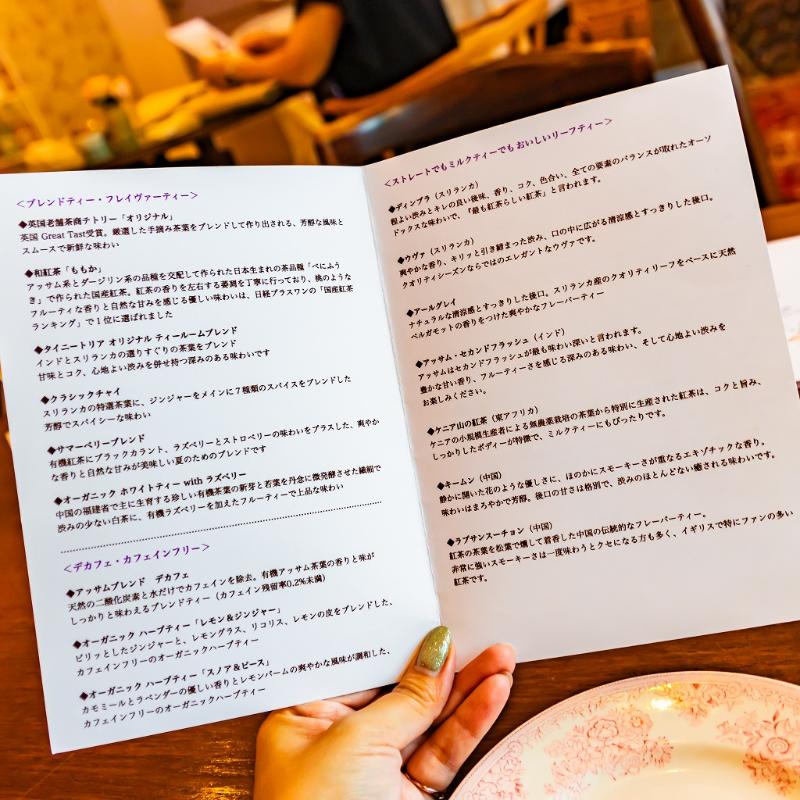 ＜ブレンドティー・フレイヴァーティー＞
◆英国老舗茶商テトリー「オリジナル」
英国 Great Tast受賞。厳選した手摘み茶葉をブレンドして作り出される、芳醇な風味と
スムースで新鮮な味わい
◆和紅茶「ももか」
アッサム系とダージリン系の品種を交配して作られた日本生まれの茶品種「べにふう
き」で作られた国産紅茶。紅茶の香りを左右する萎凋を丁寧に行っており、桃のような
フルーティな香りと自然な甘みを感じる優しい味わいは、日経プラスワンの「国産紅茶
ランキング」で1位に選ばれました
◆タイニートリア オリジナル ティールームブレンド
インドとスリランカの選りすぐりの茶葉をブレンド
甘味とコク、心地よい渋みを併せ持つ深みのある味わいです
◆クラシックチャイ
スリランカの特選茶葉に、ジンジャーをメインに7種類のスパイスをブレンドした
芳醇でスパイシーな味わい
◆サマーベリーブレンド
有機紅茶にブラックカラント、ラズベリーとストロベリーの味わいをプラスした、爽やか
な香りと自然な甘みが美味しい夏のためのブレンドです
◆オーガニック ホワイトティー with ラズベリー
中国の福建省で主に生育する珍しい有機茶葉の新芽と若葉を丹念に微発酵させた繊細で
渋みの少ない白茶に、有機ラズベリーを加えたフルーティーで上品な味わい
＜デカフェ・カフェインフリー＞
◆アッサムブレンド　デカフェ
天然の二酸化炭素と水だけでカフェインを除去。有機アッサム茶葉の香りと味が
しっかりと味わえるブレンドティー（カフェイン残留率0.2%未満）
◆オーガニック ハーブティー「レモン＆ジンジャー」
ピリッとしたジンジャーと、レモングラス、リコリス、レモンの皮をブレンドした、
カフェインフリーのオーガニックハーブティー
◆オーガニック ハーブティー「スノア＆ピース」
カモミールとラベンダーの優しい香りとレモンバームの爽やかな風味が調和した、
カフェインフリーのオーガニックハーブティー
＜ストレートでもミルクティーでもおいしいリーフティー＞
◆ディンブラ（スリランカ）
程よい渋みとキレの良い後味、香り、コク、色合い、全ての要素のバランスが取れたオーソ
ドックスな味わいで、「最も紅茶らしい紅茶」と言われます。
◆ウヴァ（スリランカ）
爽やかな香り、キリッと引き締まった渋み、口の中に広がる清涼感とすっきりした後口。
クオリティシーズンならではのエレガントなウヴァです。
◆アールグレイ
ナチュラルな清涼感とすっきりした後口。スリランカ産のクオリティリーフをベースに天然
ベルガモットの香りをつけた爽やかなフレーバーティー
◆アッサム・セカンドフラッシュ（インド）
アッサムはセカンドフラッシュが最も味わい深いと言われます。
豊かな甘い香り、フルーティーさを感じる深みのある味わい、そして心地よい渋みを
お楽しみください。
◆ケニア山の紅茶（東アフリカ）
ケニアの小規模生産者による無農薬栽培の茶葉から特別に生産された紅茶は、コクと旨み、
しっかりしたボディーが特徴で、ミルクティーにもぴったりです。
◆キームン（中国）
静かに開いた花のような優しさに、ほのかにスモーキーさが重なるエキゾチックな香り。
味わいはまろやかで芳醇。後口の甘さは格別で、渋みのほとんどない癒される味わいです。
◆ラプサンスーチョン（中国）
紅茶の茶葉を松葉で燻して着香した中国の伝統的なフレーバーティー。
非常に強いスモーキーさは一度味わうとクセになる方も多く、イギリスで特にファンの多い
紅茶です。